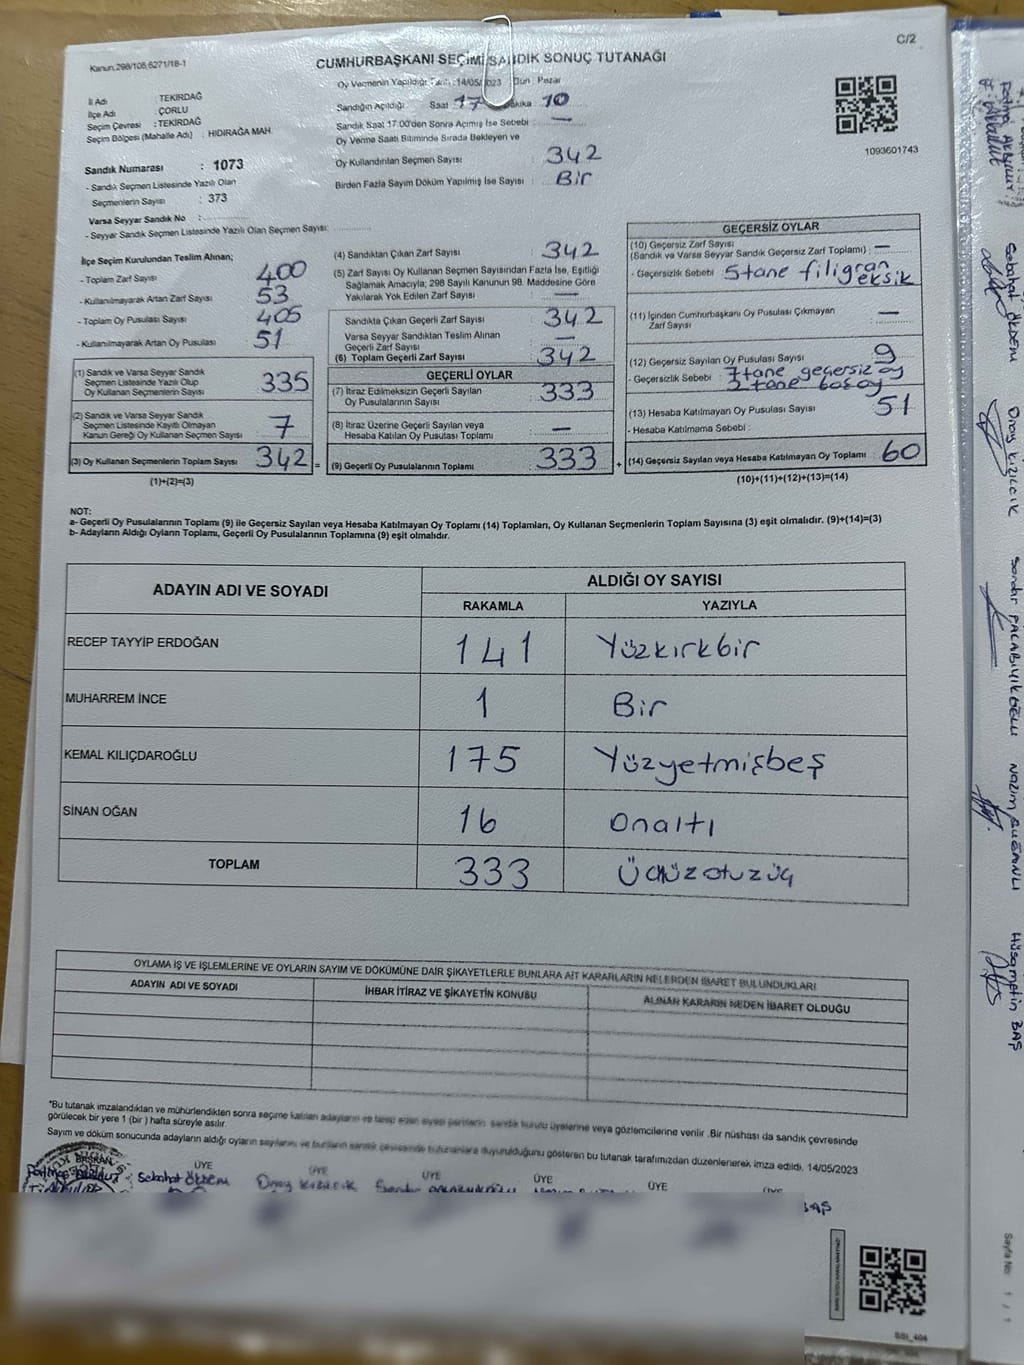 C/2
Kanun,298/105,6271/18-1
CUMHURBAŞKANI SEÇİMİ SANDIK SONUÇ TUTANAĞI
Oy Vermenin Yapıldığı Tarih :14/05/2023 Gün : Pazar
İl Adı : TEKİRDAĞ
İlçe Adı : ÇORLU
Seçim Çevresi : TEKİRDAĞ
Seçim Bölgesi (Mahalle Adı) : HIDIRAĞA MAH
Sandığın Açıldığı Saat 17 Dakika 10
Sandık Saat 17:00'den Sonra Açımış İse Sebebi : —
Oy Verme Saati Bitiminde Sırada Bekleyen ve
Oy Kullandırılan Seçmen Sayısı : 342
Birden Fazla Sayım Döküm Yapılmış İse Sayısı : Bir
1093601743
Sandık Numarası : 1073
- Sandık Seçmen Listesinde Yazılı Olan
Seçmenlerin Sayısı : 373
Varsa Seyyar Sandık No :
- Seyyar Sandık Seçmen Listesinde Yazılı Olan Seçmen Sayısı:
İlçe Seçim Kurulundan Teslim Alınan;
- Toplam Zarf Sayısı 400
- Kullanılmayarak Artan Zarf Sayısı 53
- Toplam Oy Pusulası Sayısı 405
- Kullanılmayarak Artan Oy Pusulası 51
(1) Sandık ve Varsa Seyyar Sandık
Seçmen Listesinde Yazılı Olup
Oy Kullanan Seçmenlerin Sayısı 335
(2) Sandık ve Varsa Seyyar Sandık
Seçmen Listesinde Kayıtlı Olmayan
Kanun Gereği Oy Kullanan Seçmen Sayısı 7
(3) Oy Kullanan Seçmenlerin Toplam Sayısı 342 =
(1)+(2)=(3)
(4) Sandıktan Çıkan Zarf Sayısı 342
(5) Zarf Sayısı Oy Kullanan Seçmen Sayısından Fazla İse, Eşitliği
Sağlamak Amacıyla; 298 Sayılı Kanunun 98. Maddesine Göre
Yakılarak Yok Edilen Zarf Sayısı —
Sandıkta Çıkan Geçerli Zarf Sayısı 342
Varsa Seyyar Sandıktan Teslim Alınan
Geçerli Zarf Sayısı —
(6) Toplam Geçerli Zarf Sayısı 342
GEÇERLİ OYLAR
(7) İtiraz Edilmeksizin Geçerli Sayılan
Oy Pusulalarının Sayısı 333
(8) İtiraz Üzerine Geçerli Sayılan veya
Hesaba Katılan Oy Pusulası Toplamı —
(9) Geçerli Oy Pusulalarının Toplamı 333 +
GEÇERSİZ OYLAR
(10) Geçersiz Zarf Sayısı
(Sandık ve Varsa Seyyar Sandık Geçersiz Zarf Toplamı) : —
- Geçersizlik Sebebi : 5 tane filigran
eksik
(11) İçinden Cumhurbaşkanı Oy Pusulası Çıkmayan
Zarf Sayısı —
(12) Geçersiz Sayılan Oy Pusulası Sayısı 9
- Geçersizlik Sebebi : 7 tane geçersiz oy
2 tane boş oy
(13) Hesaba Katılmayan Oy Pusulası Sayısı 51
- Hesaba Katılmama Sebebi :
(14) Geçersiz Sayılan veya Hesaba Katılmayan Oy Toplamı : 60
(10)+(11)+(12)+(13)=(14)
NOT:
a- Geçerli Oy Pusulalarının Toplamı (9) ile Geçersiz Sayılan veya Hesaba Katılmayan Oy Toplamı (14) Toplamları, Oy Kullanan Seçmenlerin Toplam Sayısına (3) eşit olmalıdır. (9)+(14)=(3)
b- Adayların Aldığı Oyların Toplamı, Geçerli Oy Pusulalarının Toplamına (9) eşit olmalıdır.
ADAYIN ADI VE SOYADI ALDIĞI OY SAYISI
RAKAMLA YAZIYLA
RECEP TAYYİP ERDOĞAN 141 Yüzkırkbir
MUHARREM İNCE 1 Bir
KEMAL KILIÇDAROĞLU 175 Yüzyetmişbeş
SİNAN OĞAN 16 onaltı
TOPLAM 333 Üçyüzotuzüç
OYLAMA İŞ VE İŞLEMLERİNE VE OYLARIN SAYIM VE DÖKÜMÜNE DAİR ŞİKAYETLERLE BUNLARA AİT KARARLARIN NELERDEN İBARET BULUNDUKLARI
ADAYIN ADI VE SOYADI İHBAR İTİRAZ VE ŞİKAYETİN KONUSU ALINAN KARARIN NEDEN İBARET OLDUĞU
*Bu tutanak imzalandıktan ve mühürlendikten sonra seçime katılan adayların ve talep eden siyasi partilerin sandık kurulu üyelerine veya gözlemcilerine verilir .Bir nüshası da sandık çevresinde
görülecek bir yere 1 (bir ) hafta süreyle asılır.
Sayım ve döküm sonucunda adayların aldığı oyların sayılarını ve bunların sandık çevresinde bulunanlara duyurulduğunu gösteren bu tutanak tarafımızdan düzenlenerek imza edildi. 14/05/2023
BAŞKAN ÜYE ÜYE ÜYE ÜYE ÜYE ÜYE
Sebahat Ökdem Oray Kızılcık
BAŞ
Sebahat ÖKDEM
Oray KIZILCIK
Hüsametin BAŞ
Sayfa No: 1 / 1